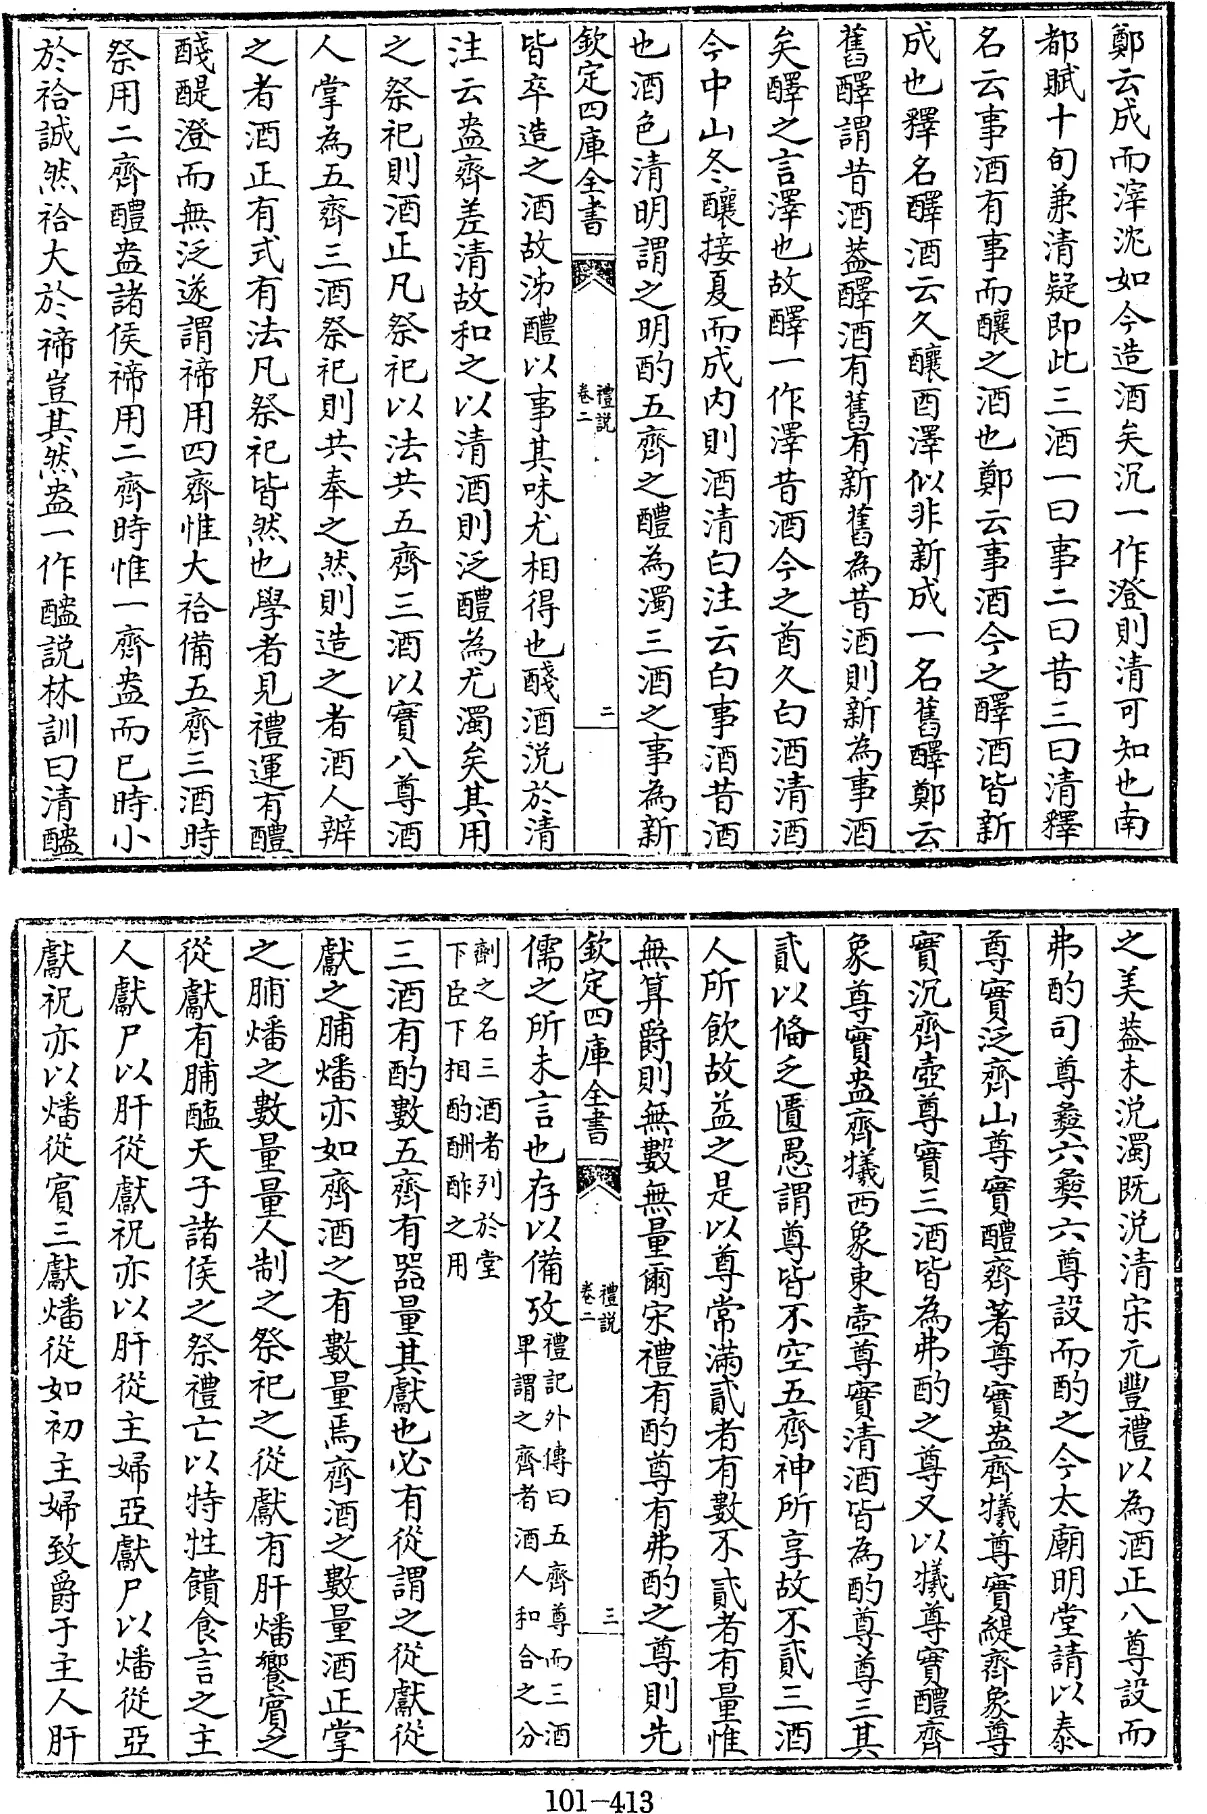 鄭云成而滓沈如今造酒矣沉一作澄則清可知也南
都賦十旬兼清疑即此三酒一曰事二曰昔三曰清釋
名云事酒有事而釀之酒也鄭云事酒今之醳酒皆新
成也釋名醳酒云久釀酉澤似非新成一名舊醳鄭云
舊醳謂昔酒葢醳酒有舊有新舊為昔酒則新為事酒
矣醳之言澤也故醳一作澤昔酒今之酋久白酒清酒
今中山冬釀接夏而成内則酒清白注云白事酒昔酒
也酒色清明謂之明酌五齊之醴為濁三酒之事為新
欽定四庫全書
禮説
卷二
二
皆卒造之酒故泲醴以事其味尤相得也醆酒涚於清
注云盎齊差清故和之以清酒則泛醴為尤濁矣其用
之祭祀則酒正凡祭祀以法共五齊三酒以實八尊酒
人掌為五齊三酒祭祀則共奉之然則造之者酒人辨
之者酒正有式有法凡祭祀皆然也學者見禮運有醴
醆醍澄而無泛遂謂禘用四齊惟大祫備五齊三酒時
祭用二齊醴盎諸侯禘用二齊時惟一齊盎而已時小
於祫誠然祫大於禘豈其然盎一作醠説林訓曰清醠
之美葢未涚濁既涚清宋元豐禮以為酒正八尊設而
弗酌司尊彝六彝六尊設而酌之今太廟明堂請以泰
尊實泛齊山尊實醴齊著尊實盎齊犧尊實緹齊象尊
實沉齊壺尊實三酒皆為弗酌之尊又以犧尊實醴齊
象尊實盎齊犧西象東壺尊實清酒皆為酌尊尊三其
貳以備乏匱愚謂尊皆不空五齊神所享故不貳三酒
人所飲故益之是以尊常滿貳者有數不貳者有量惟
無算爵則無數無量爾宋禮有酌尊有弗酌之尊則先
欽定四庫全書
禮説
卷二
三
儒之所未言也存以備攷
禮記外傳曰五齊尊而三酒
卑謂之齊者酒人和合之分
劑之名三酒者列於堂
下臣下相酌酬酢之用
三酒有酌數五齊有器量其獻也必有從謂之從獻從
獻之脯燔亦如齊酒之有數量焉齊酒之數量酒正掌
之脯燔之數量量人制之祭祀之從獻有肝燔饗賓之
從獻有脯醢天子諸侯之祭禮亡以特牲饋食言之主
人獻尸以肝從獻祝亦以肝從主婦亞獻尸以燔從亞
獻祝亦以燔從賓三獻燔從如初主婦致爵于主人肝
101-413